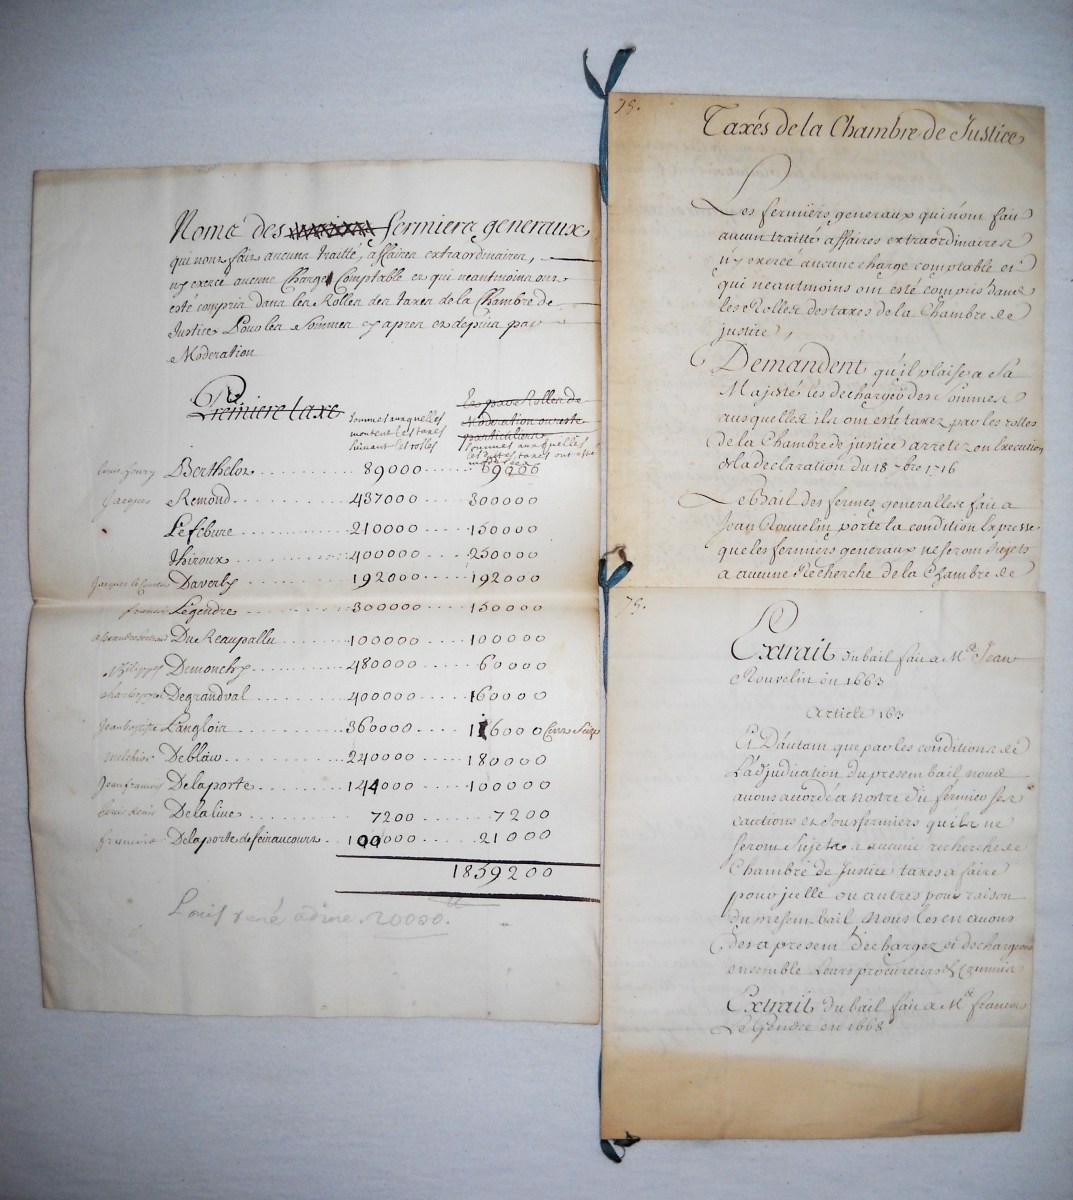 Noms des fermiers generaux
qui n'ont fait aucuns traitté, affaires extraordinaires,
n'y exercé aucune Charge Comptable et qui neantmoins ont
esté compris dans les Rolles des taxes de la Chambre de
Justice Pour les Sommes cy apres et depuis par
Moderation
Premiere taxe
Sommes auxquelles
montent les taxes
suivant les rolles
Et par Rolles de
Moderation ou reste
particuliers
Sommes auxquelles
les dittes taxes ont esté
Berthelot 89000 89000
Jacques Remond 437000 300000
Lefebure 210000 150000
Thiroux 400000 250000
Daverly 192000 192000
francois Legendre 300000 150000
Du Reaupallu 100000 100000
Philippes Demonchy 480000 60000
Degrandval 400000 160000
Jean Baptiste Langlois 360000 116000 Cent Seize
melchior Deblair 240000 180000
Jean francois Delaporte 144000 100000
Louis denis Delalive 7200 7200
francois Delaporte de feraucourt 100000 21000
1859200
Louis rené 20000.
75.
Taxés de la Chambre de Justice
Les fermiers generaux qui n'ont fait
aucun traitté affaires extraordinaires
n'y exercé aucune charge comptable et
qui neantmoins ont esté compris dans
les Rolles des taxes de la Chambre de
justice,
Demandent qu'il plaise a Sa
Majesté les decharger des Sommes
ausquelles ils ont esté taxez par les rolles
de la Chambre de justice arretez en Execution
de la declaration du 18 7bre 1716
Le Bail des fermes generalles fait a
Jean Rouvelin porte la condition Expresse
que les fermiers generaux ne seront Sujets
a aucune Recherche de la Chambre de
75.
Extrait du bail fait a Me Jean
Rouvelin en 1663
Article 163
Et D'autant que par les conditions de
L'adjudication du present bail nous
avons accordé a nostre dit fermier ses
cautions et Sousfermiers qu'ils ne
seront Sujets a aucune recherche de
Chambre de Justice taxes a faire
pour icelle ou autres pour raison
du present bail Nous les en avons
des a present dechargez et dechargeons
ensemble leurs procureurs & commis
Extrait du bail fait a Me francois
Le Gendre en 1668